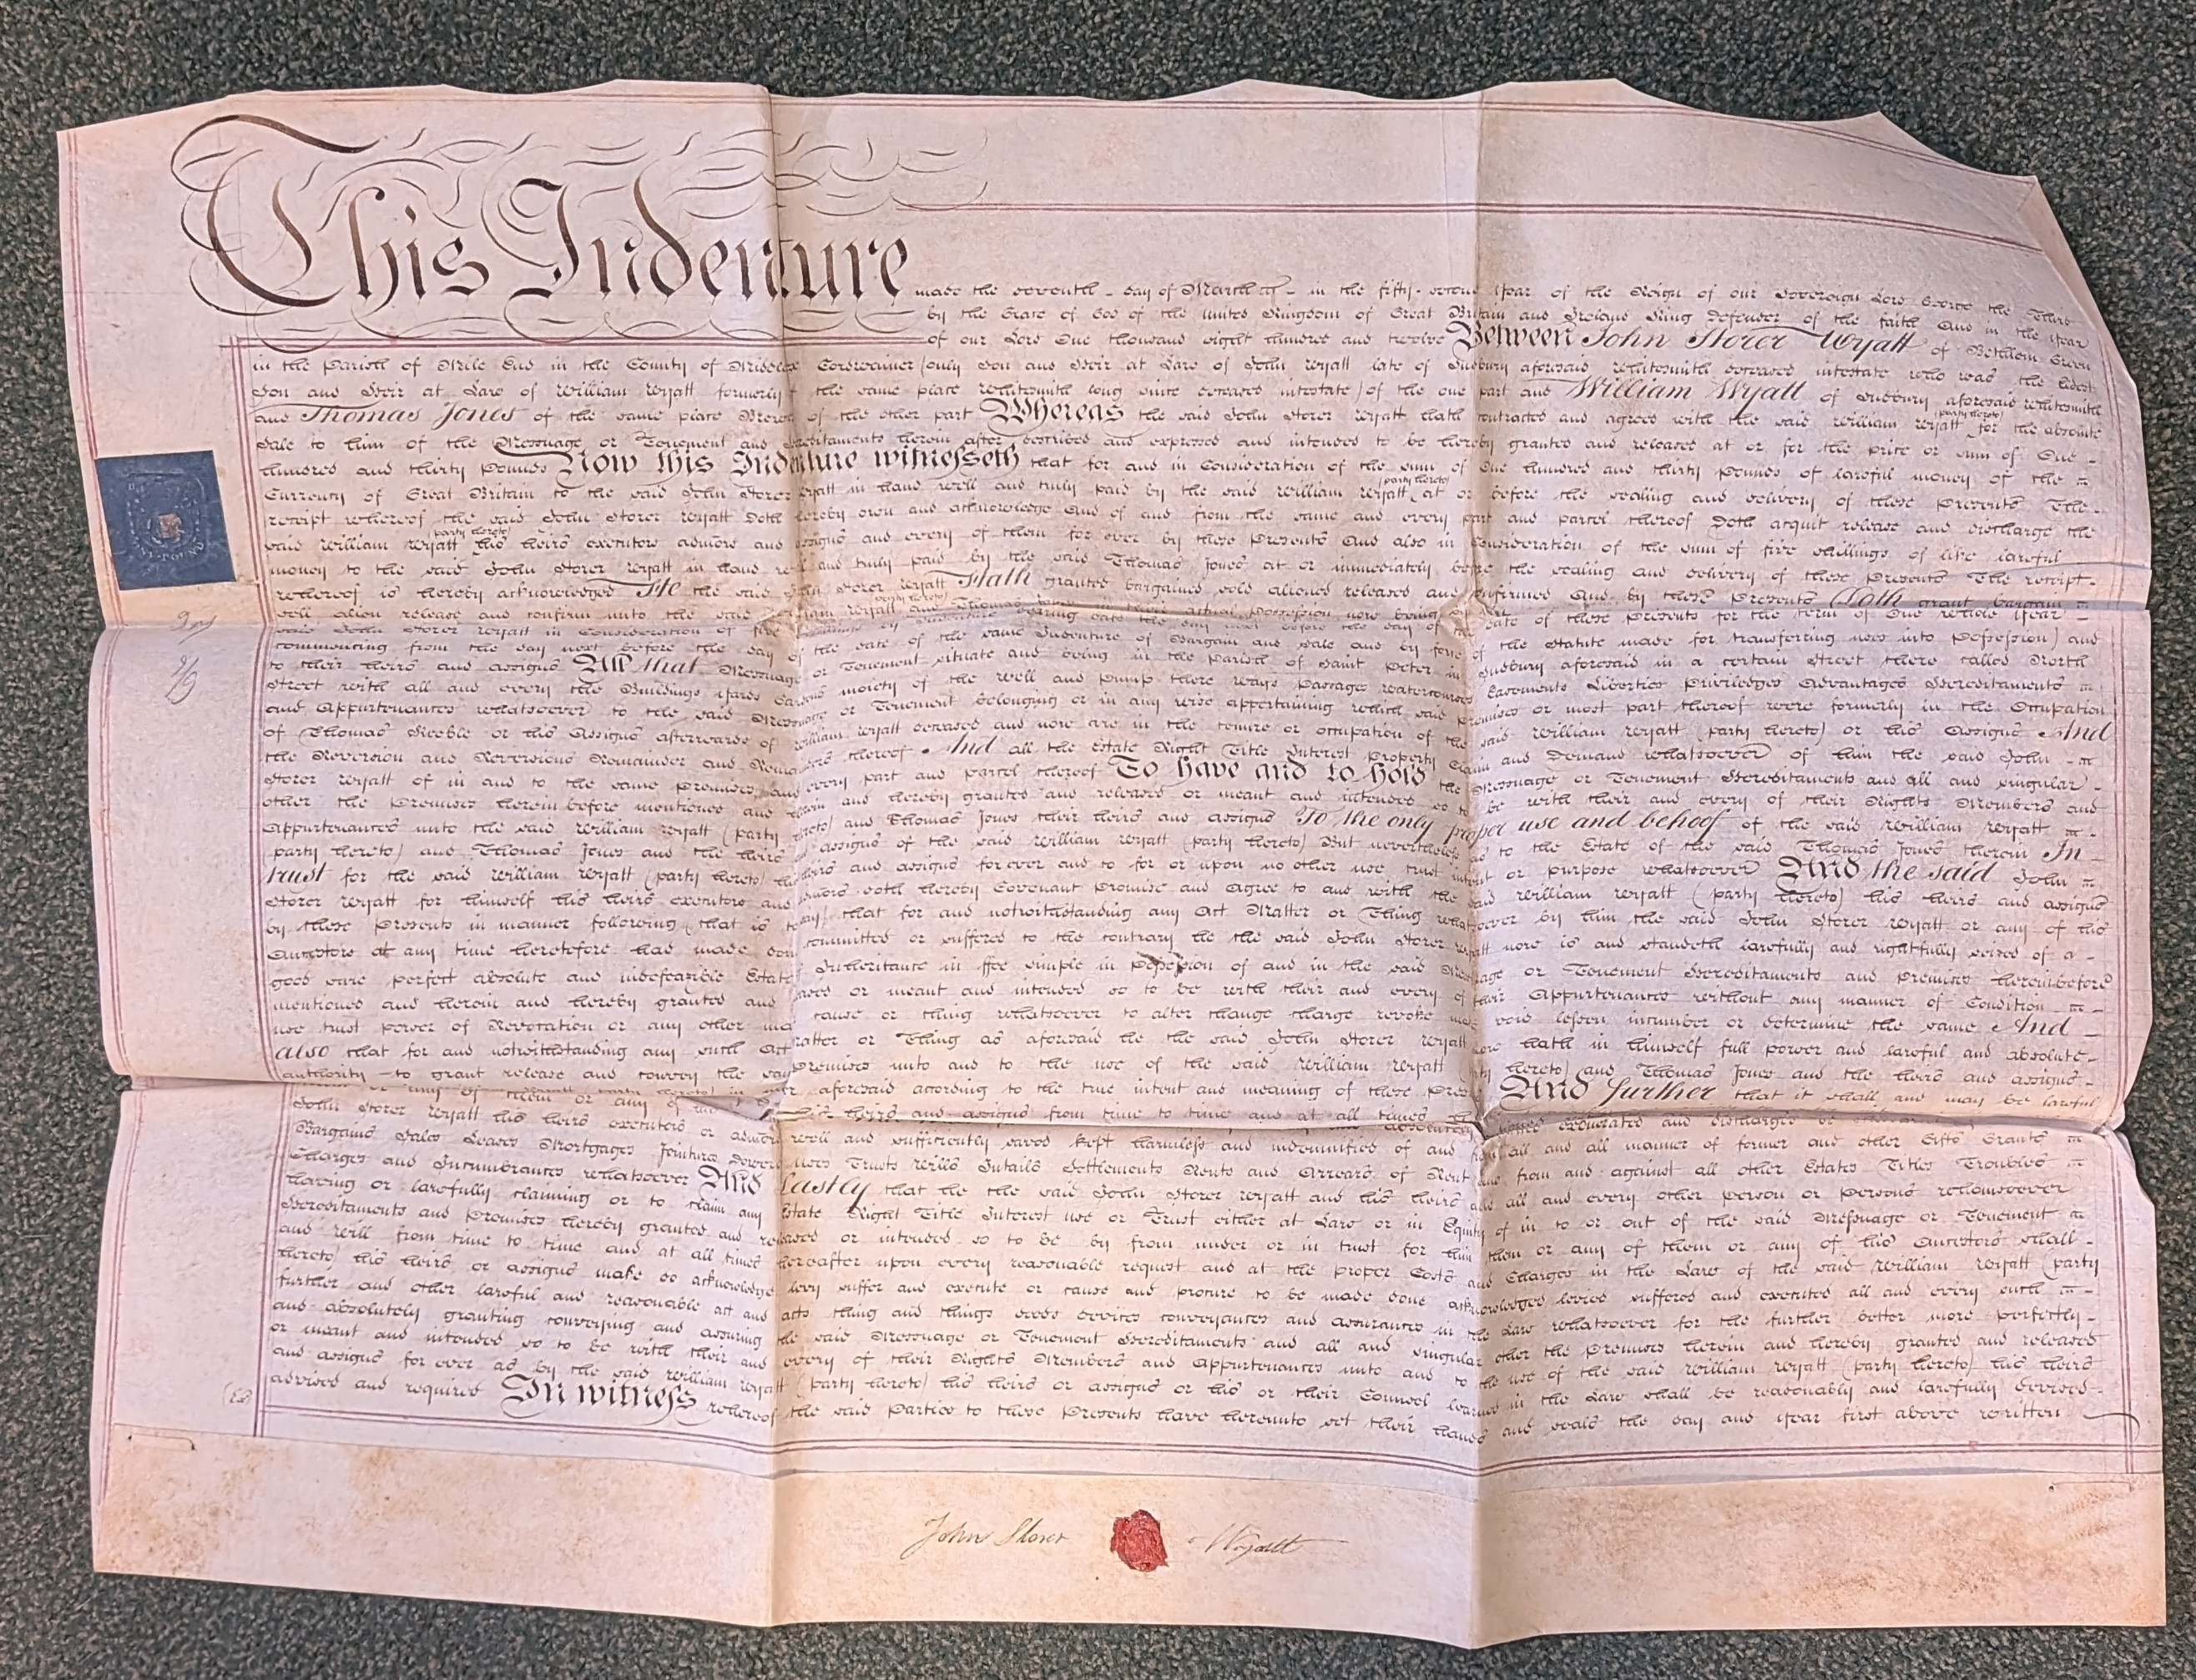 This Indenture made the seventh day of March in the fifty second Year of the Reign of our Sovereign Lord George the Third
by the Grace of God of the United Kingdom of Great Britain and Ireland King Defender of the Faith And in the Year
of our Lord One thousand eight hundred and twelve Between John Storer Wyatt of Bethlem Green
in the Parish of Mile End in the County of Middlesex Cordwainer (only Son and Heir at Law of John Wyatt late of Sudbury aforesaid Whitesmith deceased intestate who was the Eldest
Son and Heir at Law of William Wyatt formerly of the same place Whitesmith long since deceased intestate) of the one part and William Wyatt of Sudbury aforesaid Whitesmith
and Thomas Jones of the same place of the other part Whereas the said John Storer Wyatt hath contracted and agreed with the said William Wyatt (party hereto) for the absolute
Sale to him of the Messuage or Tenement and Hereditaments herein after described and expressed and intended to be hereby granted and released at or for the price or sum of One
hundred and thirty Pounds Now this Indenture witnesseth that for and in Consideration of the sum of One hundred and thirty Pounds of lawful money of the
Currency of Great Britain to the said John Storer Wyatt in hand well and truly paid by the said William Wyatt (party hereto) at or before the sealing and delivery of these Presents The
receipt whereof the said John Storer Wyatt Doth hereby own and acknowledge And of and from the same and every part and parcel thereof Doth acquit release and discharge the
said William Wyatt (party hereto) his heirs executors admors and assigns and every of them for ever by these Presents And also in Consideration of the sum of five shillings of like lawful
money to the said John Storer Wyatt in hand well and truly paid by the said Thomas Jones at or immediately before the sealing and delivery of these Presents The receipt
whereof is hereby acknowledged He the said John Storer Wyatt Hath granted bargained sold aliened released and confirmed And by these Presents Doth grant bargain
sell alien release and confirm unto the said William Wyatt (party hereto) and Thomas Jones in their actual Possession now being
said John Storer Wyatt in Consideration of five bearing date the day next before the day of the date of these Presents for the term of One whole Year
commencing from the day next before the day of the date of the same Indenture of Bargain and Sale and by force of the Statute made for transferring uses into Possession) and
to their heirs and assigns All that Messuage or Tenement situate and being in the Parish of Saint Peter in Sudbury aforesaid in a certain Street there called North
Street with all and every the Buildings Yards moiety of the well and pump there ways passages watercourses Easements Liberties Privileges Advantages Hereditaments
and Appurtenances whatsoever to the said Messuage or Tenement belonging or in any wise appertaining which said premises or most part thereof were formerly in the Occupation
of Thomas Keeble or his Assigns afterwards of William Wyatt deceased and now are in the tenure or occupation of the said William Wyatt (party hereto) or his Assigns And
the Reversion and Reversions Remainder and Remainders thereof And all the Estate Right Title Interest Property Claim and Demand whatsoever of him the said John
Storer Wyatt of in and to the same Premises and every part and parcel thereof To have and to hold the Messuage or Tenement Hereditaments and all and singular
other the Premises herein before mentioned and herein and hereby granted and released or meant and intended so to be with their and every of their Rights Members and
Appurtenances unto the said William Wyatt (party hereto) and Thomas Jones their heirs and assigns To the only proper use and behoof of the said William Wyatt
(party hereto) and Thomas Jones and the heirs and assigns of the said William Wyatt (party hereto) But nevertheless as to the Estate of the said Thomas Jones therein In
trust for the said William Wyatt (party hereto) his heirs and assigns for ever and to for or upon no other use trust intent or purpose whatsoever And the said John
Storer Wyatt for himself his heirs executors and admors doth hereby Covenant Promise and Agree to and with the said William Wyatt (party hereto) his heirs and assigns
by these Presents in manner following (that is to say) that for and notwithstanding any Act Matter or Thing whatsoever by him the said John Storer Wyatt or any of his
Ancestors at any time heretofore had made done committed or suffered to the contrary he the said John Storer Wyatt now is and standeth lawfully and rightfully seized of a
good sure perfect absolute and indefeasible Estate of Inheritance in ffee simple in Possession of and in the said Messuage or Tenement Hereditaments and premises hereinbefore
mentioned and herein and hereby granted and released or meant and intended so to be with their and every of their Appurtenances without any manner of Condition
use trust power of Revocation or any other matter cause or thing whatsoever to alter change charge revoke make void lessen incumber or determine the same And
also that for and notwithstanding any such Act Matter or Thing as aforesaid he the said John Storer Wyatt now hath in himself full power and lawful and absolute
authority to grant release and convey the said premises unto and to the use of the said William Wyatt (party hereto) and Thomas Jones and the heirs and assigns
aforesaid according to the true intent and meaning of these Presents And further that it shall and may be lawful
his heirs and assigns from time to time and at all times
John Storer Wyatt his heirs executors or admors well and sufficiently saved kept harmless and indemnified of and from all and all manner of former and other Gifts Grants
Bargains Sales Leases Mortgages Jointures Dowers uses Trusts Wills Intails Settlements Rents and Arrears of Rent and from and against all other Estates Titles Troubles
Charges and Incumbrances whatsoever And Lastly that he the said John Storer Wyatt and his heirs and all and every other person or persons whomsoever
having or lawfully claiming or to claim any Estate Right Title Interest use or Trust either at Law or in Equity of in to or out of the said Messuage or Tenement
Hereditaments and Premises hereby granted and released or intended so to be by from under or in trust for him them or any of them or any of his Ancestors shall
and will from time to time and at all times hereafter upon every reasonable request and at the proper Costs and Charges in the Law of the said William Wyatt (party
hereto) his heirs or assigns make do acknowledge levy suffer and execute or cause and procure to be made done acknowledged levied suffered and executed all and every such
further and other lawful and reasonable act and acts thing and things deeds devices conveyances and assurances in the Law whatsoever for the further better more perfectly
and absolutely granting conveying and assuring the said Messuage or Tenement Hereditaments and all and singular other the Premises herein and hereby granted and released
or meant and intended so to be with their and every of their Rights Members and Appurtenances unto and to the use of the said William Wyatt (party hereto) his heirs
and assigns for ever as by the said William Wyatt (party hereto) his heirs or assigns or his or their Counsel learned in the Law shall be reasonably and lawfully devised
advised and required In witness whereof the said Parties to these Presents have hereunto set their hands and seals the day and year first above written
John Storer Wyatt